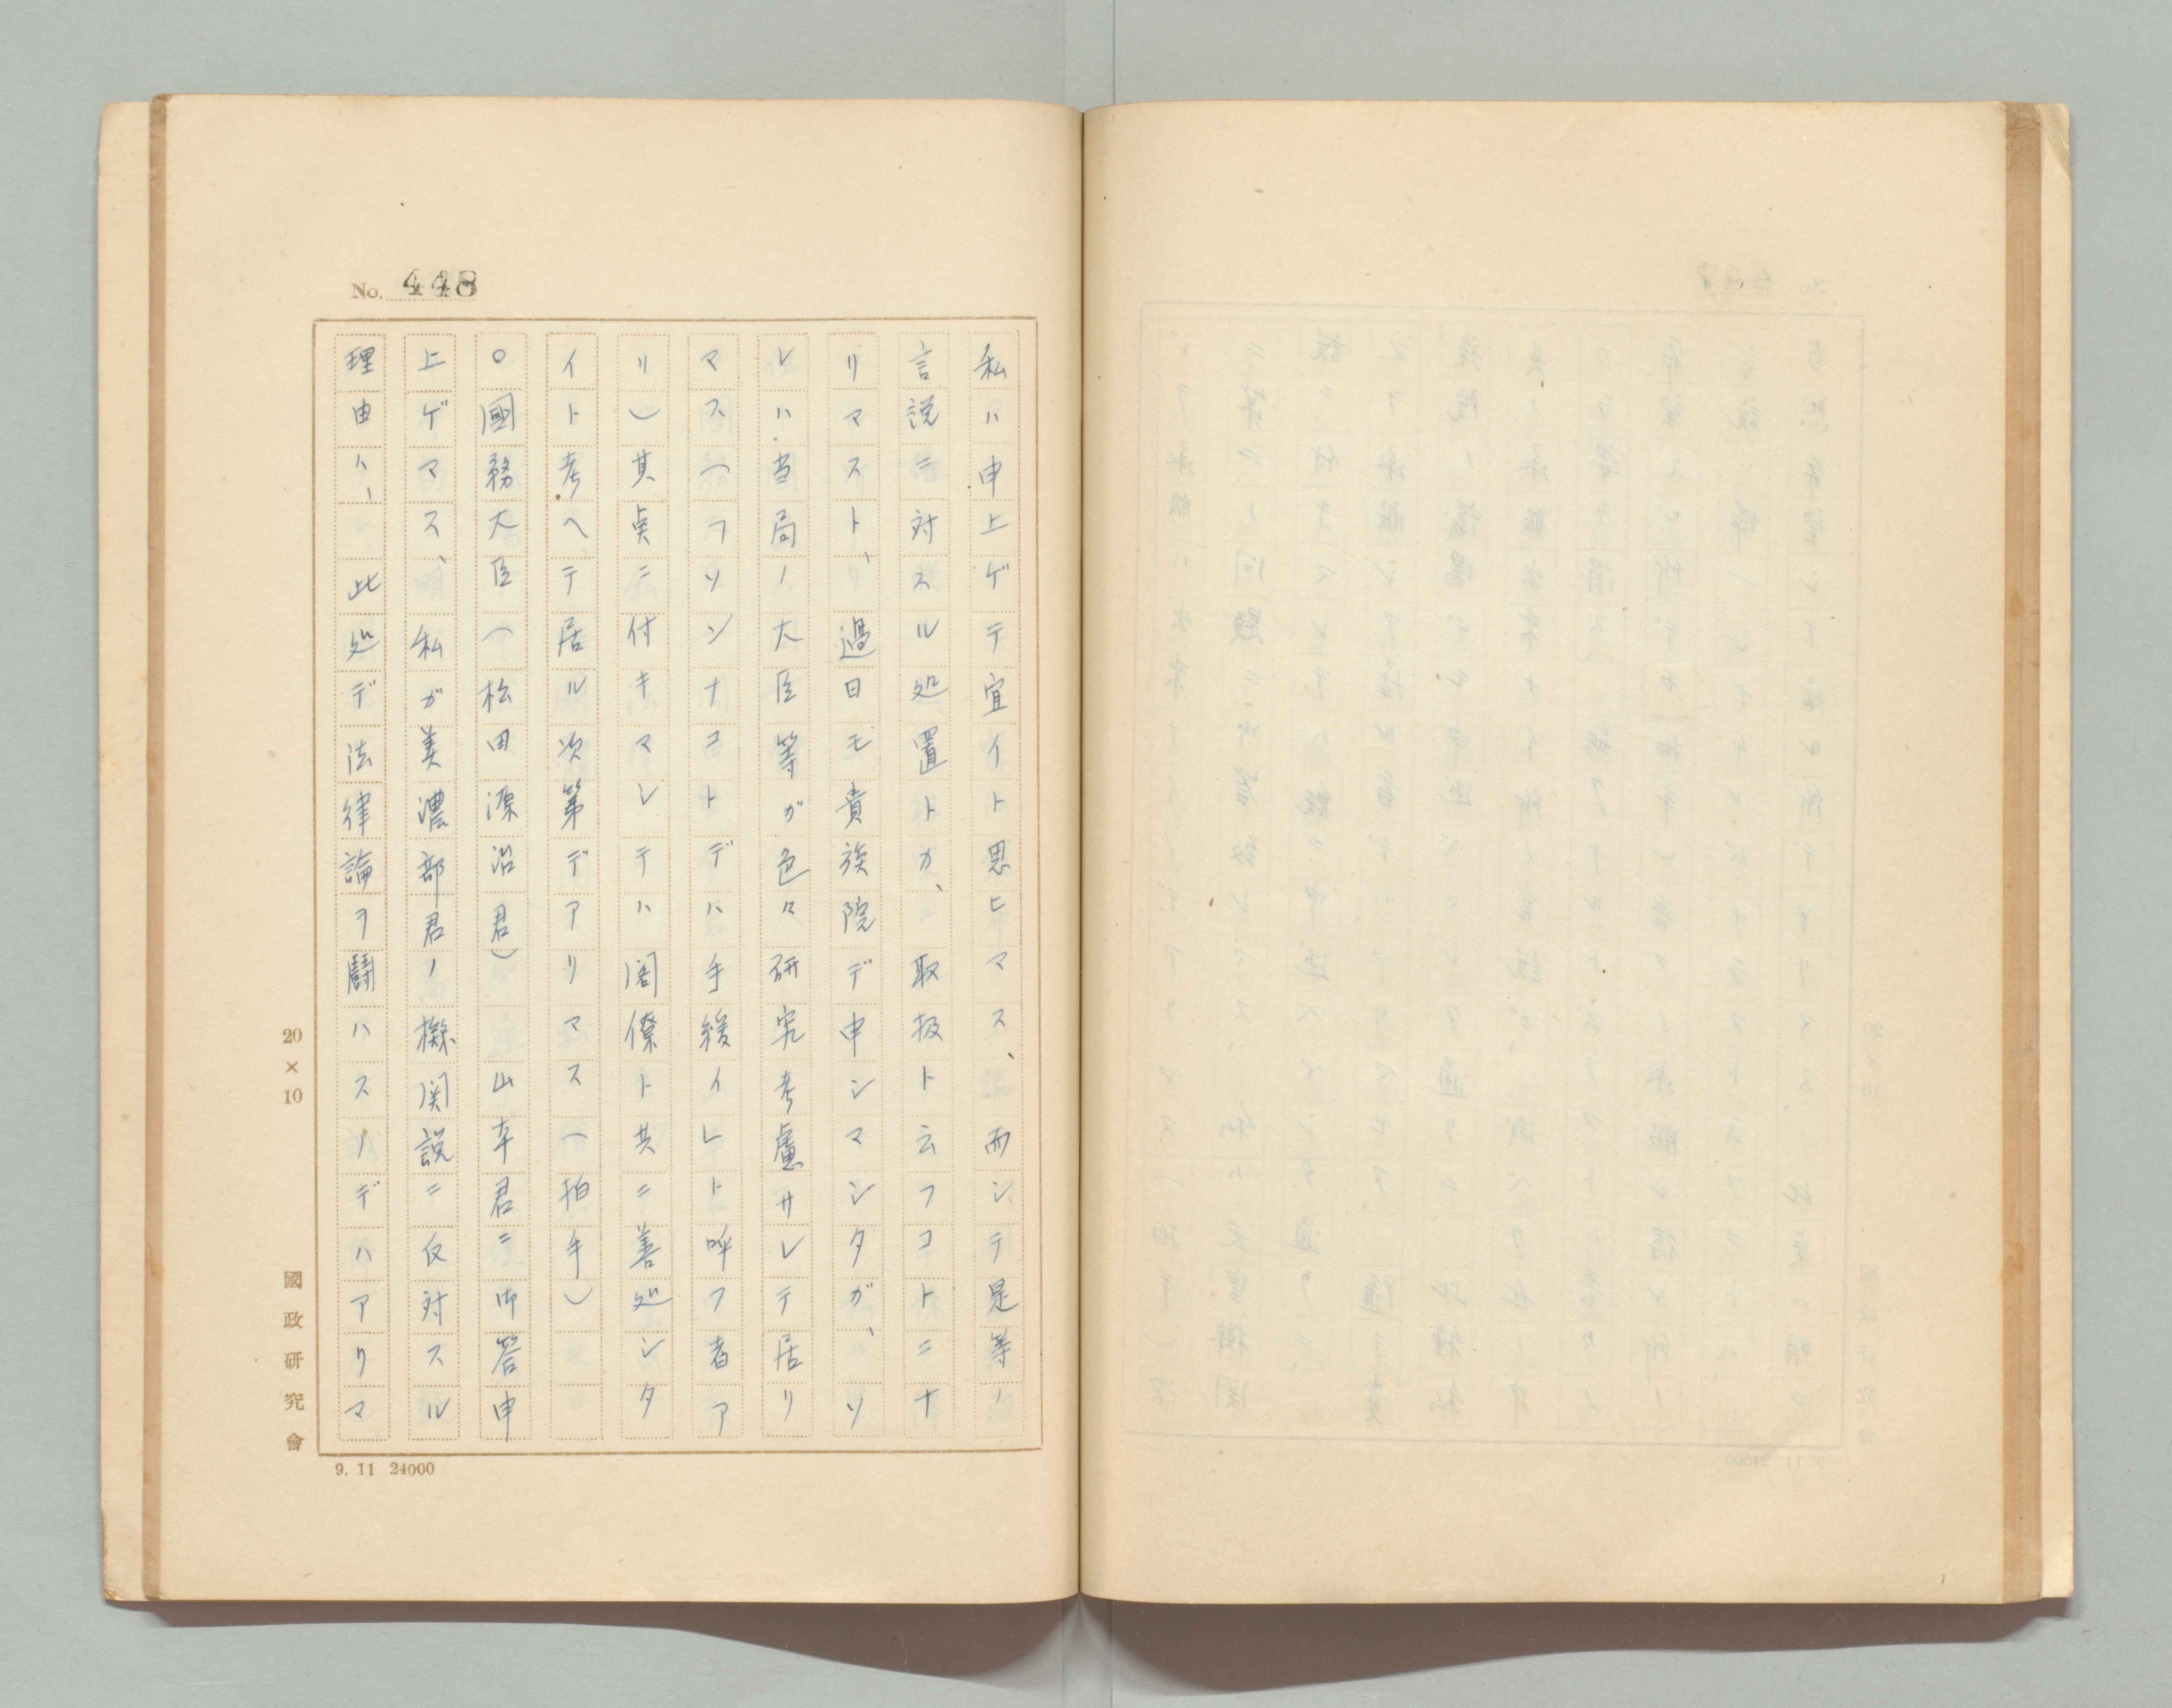 No. 448
私ハ申上ゲテ宜イト思ヒマス、而シテ是等ノ
言説ニ対スル処置トカ、取扱ト云フコトニナ
リマスト、過日モ貴族院デ申シマシタガ、ソ
レハ当局ノ大臣等ガ色々研究考慮サレテ居リ
マス(「フソンナコトデハ手緩イ」ト呼フ者ア
リ)其点ニ付キマシテハ閣僚ト共ニ善処シタ
イト考ヘテ居ル次第デアリマス(拍手)
○國務大臣(松田源治君) 山本君ニ御答申
上ゲマス、私ガ美濃部君ノ機関説ニ反対スル
理由ハ、此処デ法律論ヲ鬪ハスノデハアリマ
20×10
國政研究會
9. 11 24000